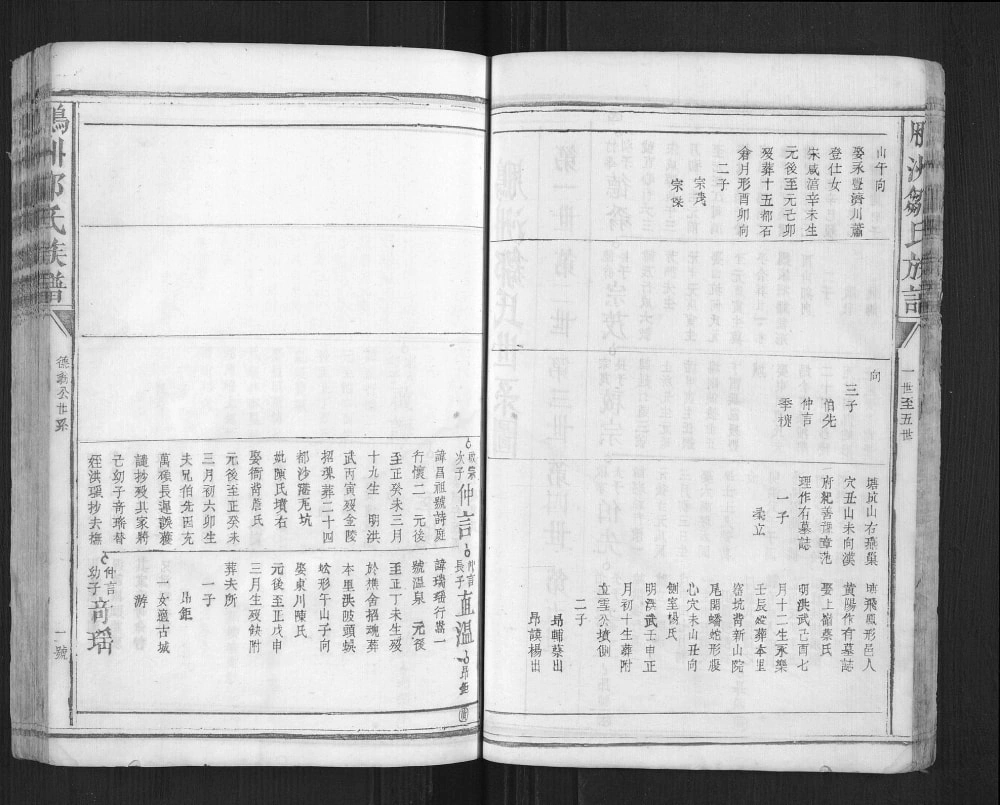 洲鄒氏族譜
一世至五世
山午向
娶永豐濟川蕭
登仕女
宋咸淳辛未生
元後至元己卯
歿葬十五都石
倉月形酉卯向
二子
宗茂
宗傑
向
三子
伯先
仲言
季槐
塘坑山右燕巢
穴丑山未向漢
府紀善龍章范
理作有墓誌
一子
柔立
飛鳳形邑人
黃陽作有墓誌
娶上嶺蔡氏
明洪武己酉七
月十二生永樂
壬辰歿葬本里
窑坑背新山院
尾開蟠蛇形腹
心穴未山丑向
側室楊氏
明洪武壬申正
月初十生葬附
立雪公墳側
二子
昂輔蔡出
昂謨楊出
次子仲言
諱昌祖號詩庭
行懷二 元後
至正癸未三月
十九生 明洪
武丙寅歿金陵
招魂葬二十四
都沙塘瓦坑
妣陳氏墳右
娶衙背詹氏
元後至正癸未
三月初六卯生
夫兄伯先因充
萬碩長遲誤糧
議抄歿具家將
亡幼子奇瑤替
姪洪璟抄去撫
仲言長子直溫
昂鉅
諱瑞瑤行潞一
號溫泉 元後
至正丁未生歿
於樵舍招魂葬
本里洪陂頭蜈
蚣形午山子向
娶東川陳氏
元後至正戊申
三月生歿缺附
葬夫所
一子
昂鉅
一女適古城
游
仲言幼子奇瑤
鄒氏族譜
德翁公世系
一號